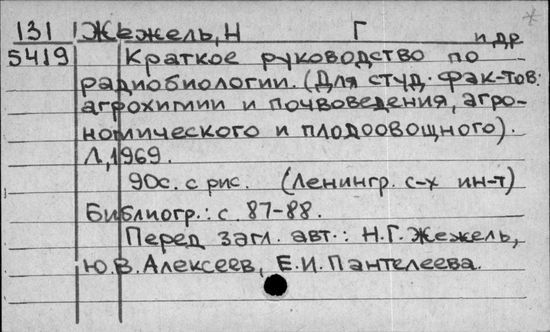 131 Жежель, Н Г и др
5419 Краткое руководство по
радиобиологии. (Для студ. фак-тов:
агрохимии и почвоведения, агро-
номического и плодоовощного).
Л, 1969.
90с. с рис. (Ленингр. с-х ин-т)
Библиогр.: с. 87-88.
Перед загл. авт.: Н.Г. Жежель,
Ю.В. Алексеев, Е.И. Пантелеева.